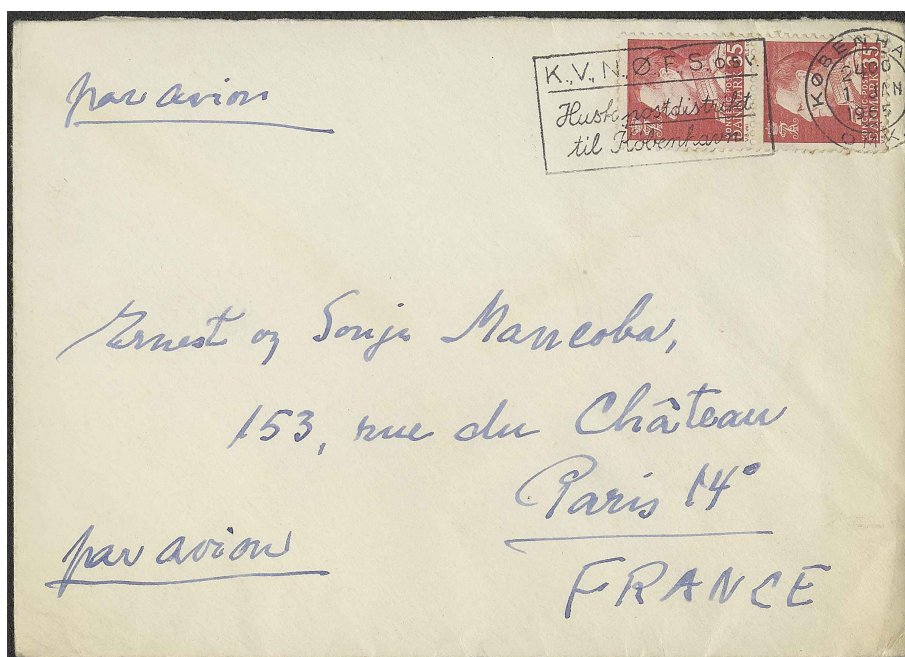 par avion
K.,V.,N.,Ø.,F.,S., o.s.v.
Husk postdistrikt
til København
DANMARK 35
DANMARK 35
KØBENHA
Ernest og Sonja Mancoba,
153, rue du Château
Paris 14°
par avion
FRANCE